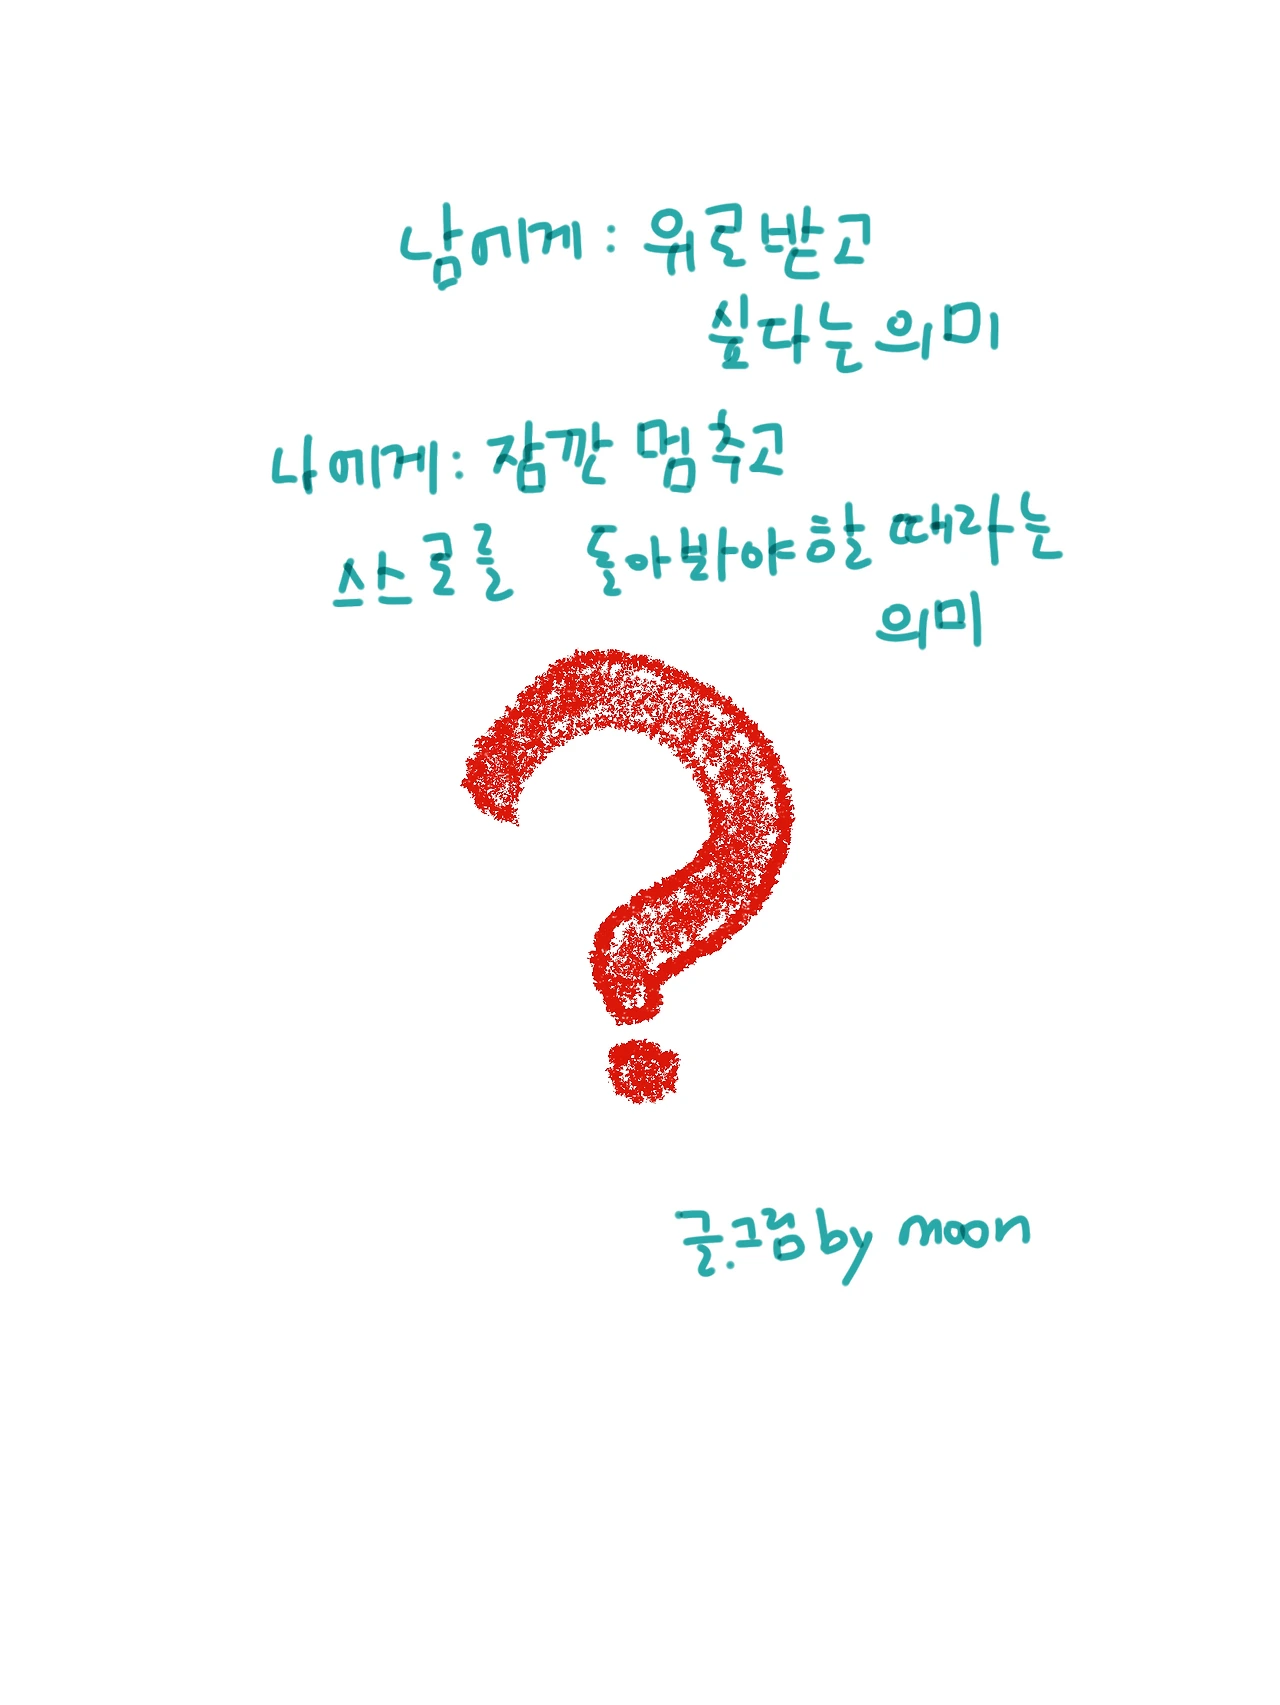 남에게: 위로받고
싶다는 의미
나에게: 잠깐 멈추고
스스로를 돌아봐야할 때라는
의미
?
글.그림 by moon